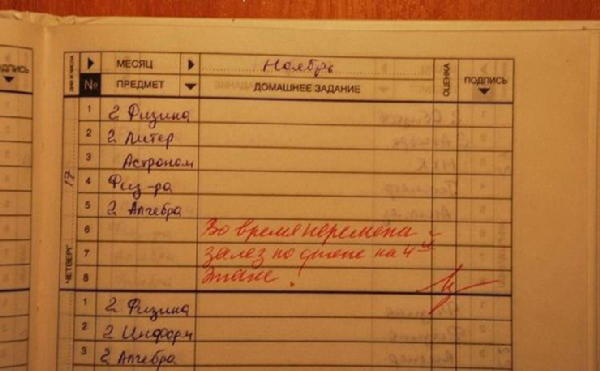 ПОДПИСЬ
МЕСЯЦ Ноябрь ОЦЕНКА ПОДПИСЬ
№ ПРЕДМЕТ ДОМАШНЕЕ ЗАДАНИЕ
17
ЧЕТВЕРГ
1 2 Физика
2 2 Литер
3 Астроном
4 Физ-ра
5 2 Алгебра
6 Во время перемены
7 залез по стене на 4ый
8 этаже.
1 2 Физика
2 2 Информ
3 2 Алгебра